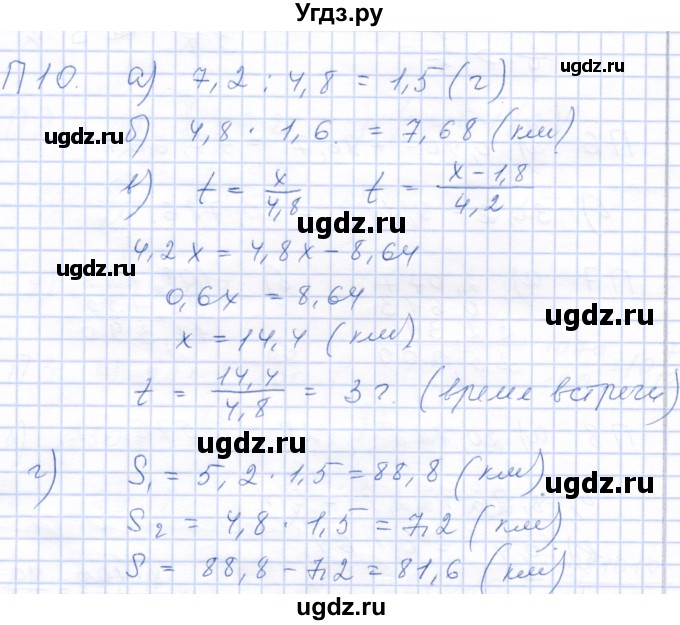 Угдз.ру
П10. а) 7,2 : 4,8 = 1,5 (г)
ugdz.ru ugdz.ru
б) 4,8 · 1,6 = 7,68 (км)
ugdz.ru
в) t = x/4,8 t = (x – 1,8)/4,2
ugdz.ru
4,2x = 4,8x – 8,64
ugdz.ru
0,6x = 8,64
ugdz.ru
x = 14,4 (км)
t = 14,4/4,8 = 3 г. (время встречи)
ugdz.ru
г) S₁ = 5,2 · 1,5 = 88,8 (км)
ugdz.ru
S₂ = 4,8 · 1,5 = 7,2 (км)
S = 88,8 – 7,2 = 81,6 (км)
ugdz.ru